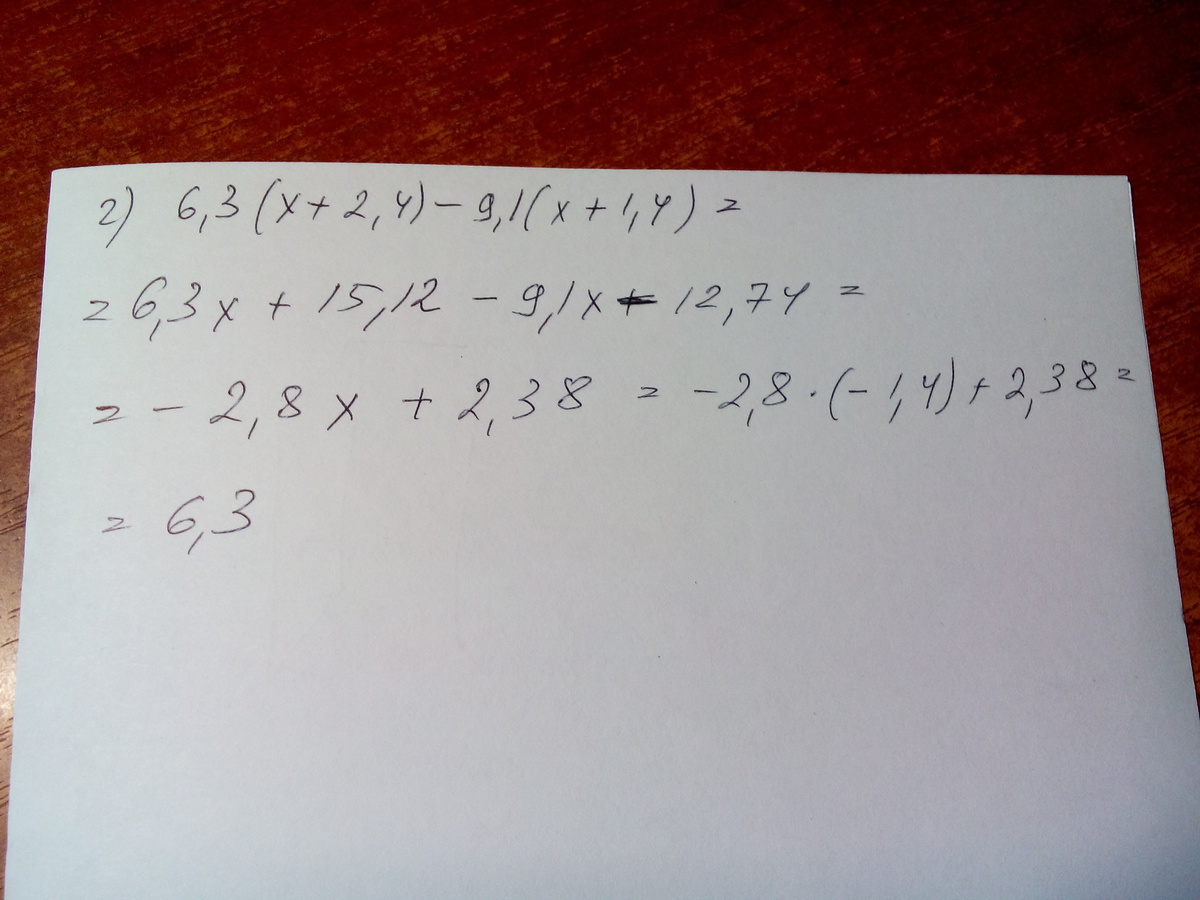 г) 6,3(x+2,4)-9,1(x+1,4)=
=6,3x+15,12-9,1x-12,74=
=-2,8x+2,38=-2,8·(-1,4)+2,38=
=6,3